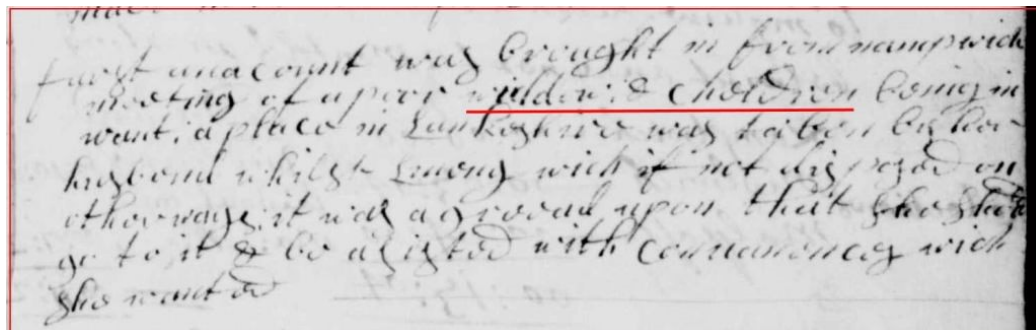 furst an acount was brought in from nampwich
meeting of a poor widdow & choldron being in
want, a place in Lankeshire was taken by hor
husband whilst Liveing wich if not disposed on
othorways, it was agreead upon that sho shold
go to it & be asisted with convaniences wich
sho wanted